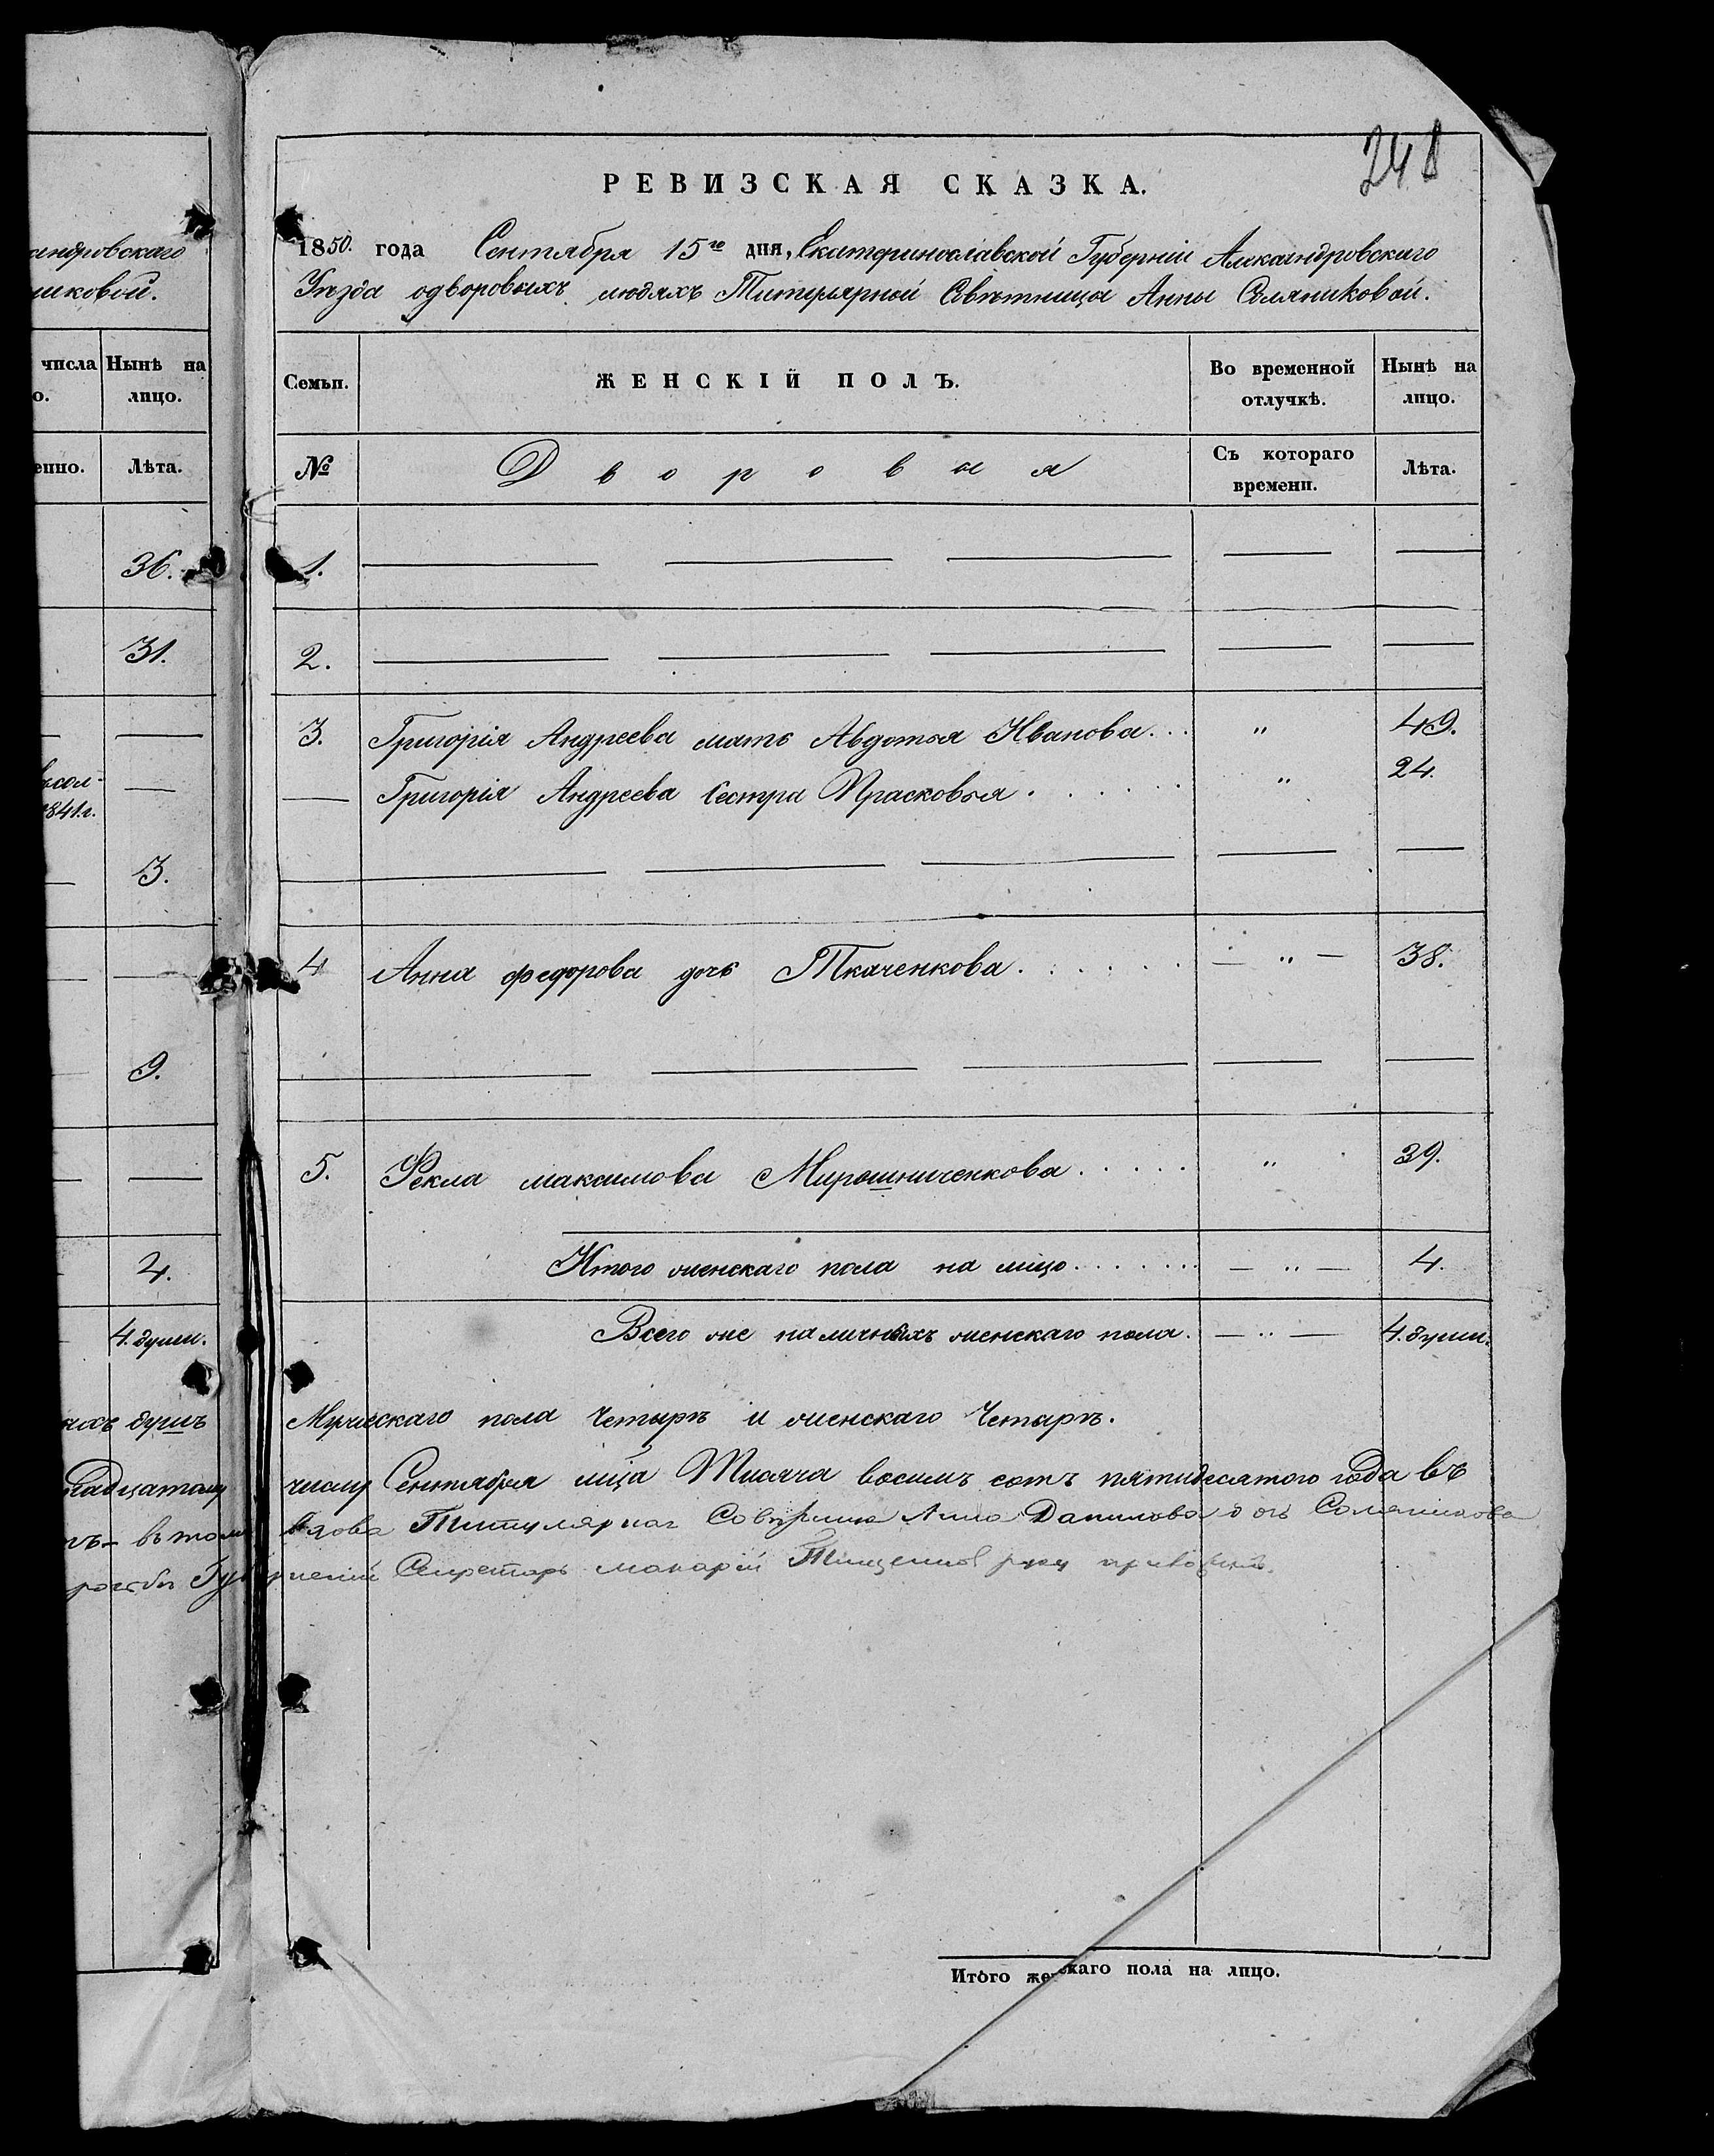 248
андровскаго
иковой.
числа Нынѣ на
о. лицо.
енно. Лѣта.
36.
31.
1841 г.
3.
9.
2.
4. души.
ихъ душъ
надцатому
въ томъ
РЕВИЗСКАЯ СКАЗКА.
1850. года Сентября 15го дня, Екатеринославской Губерніи Александровскаго
Уѣзда одворовыхъ людяхъ Титулярной Совѣтницы Анны Соляниковой.
Семьи. ЖЕНСКІЙ ПОЛЪ. Во временной отлучкѣ. Нынѣ на лицо.
№ Дворовыя Съ котораго времени. Лѣта.
1.
2.
3. Григорія Андреева мать Авдотья Иванова... " 49.
Григорія Андреева Сестра Прасковья...... " 24.
4 Анна федорова дочь Ткаченкова...... — " — 38.
5. Фекла максимова Мирошниченкова..... " 39.
Итого женскаго пола на лицо....... — " — 4.
Всего же наличныхъ женскаго пола. — " — 4. души.
Мужескаго пола Четырѣ и женскаго Четырѣ.
числу Сентября мца Тысяча восемь сотъ пятидесятого года въ
вдова Титулярная Совѣтница Анна Данилова дочь Соляникова
Секретарь макарій руку приложилъ.
Итого женскаго пола на лицо.